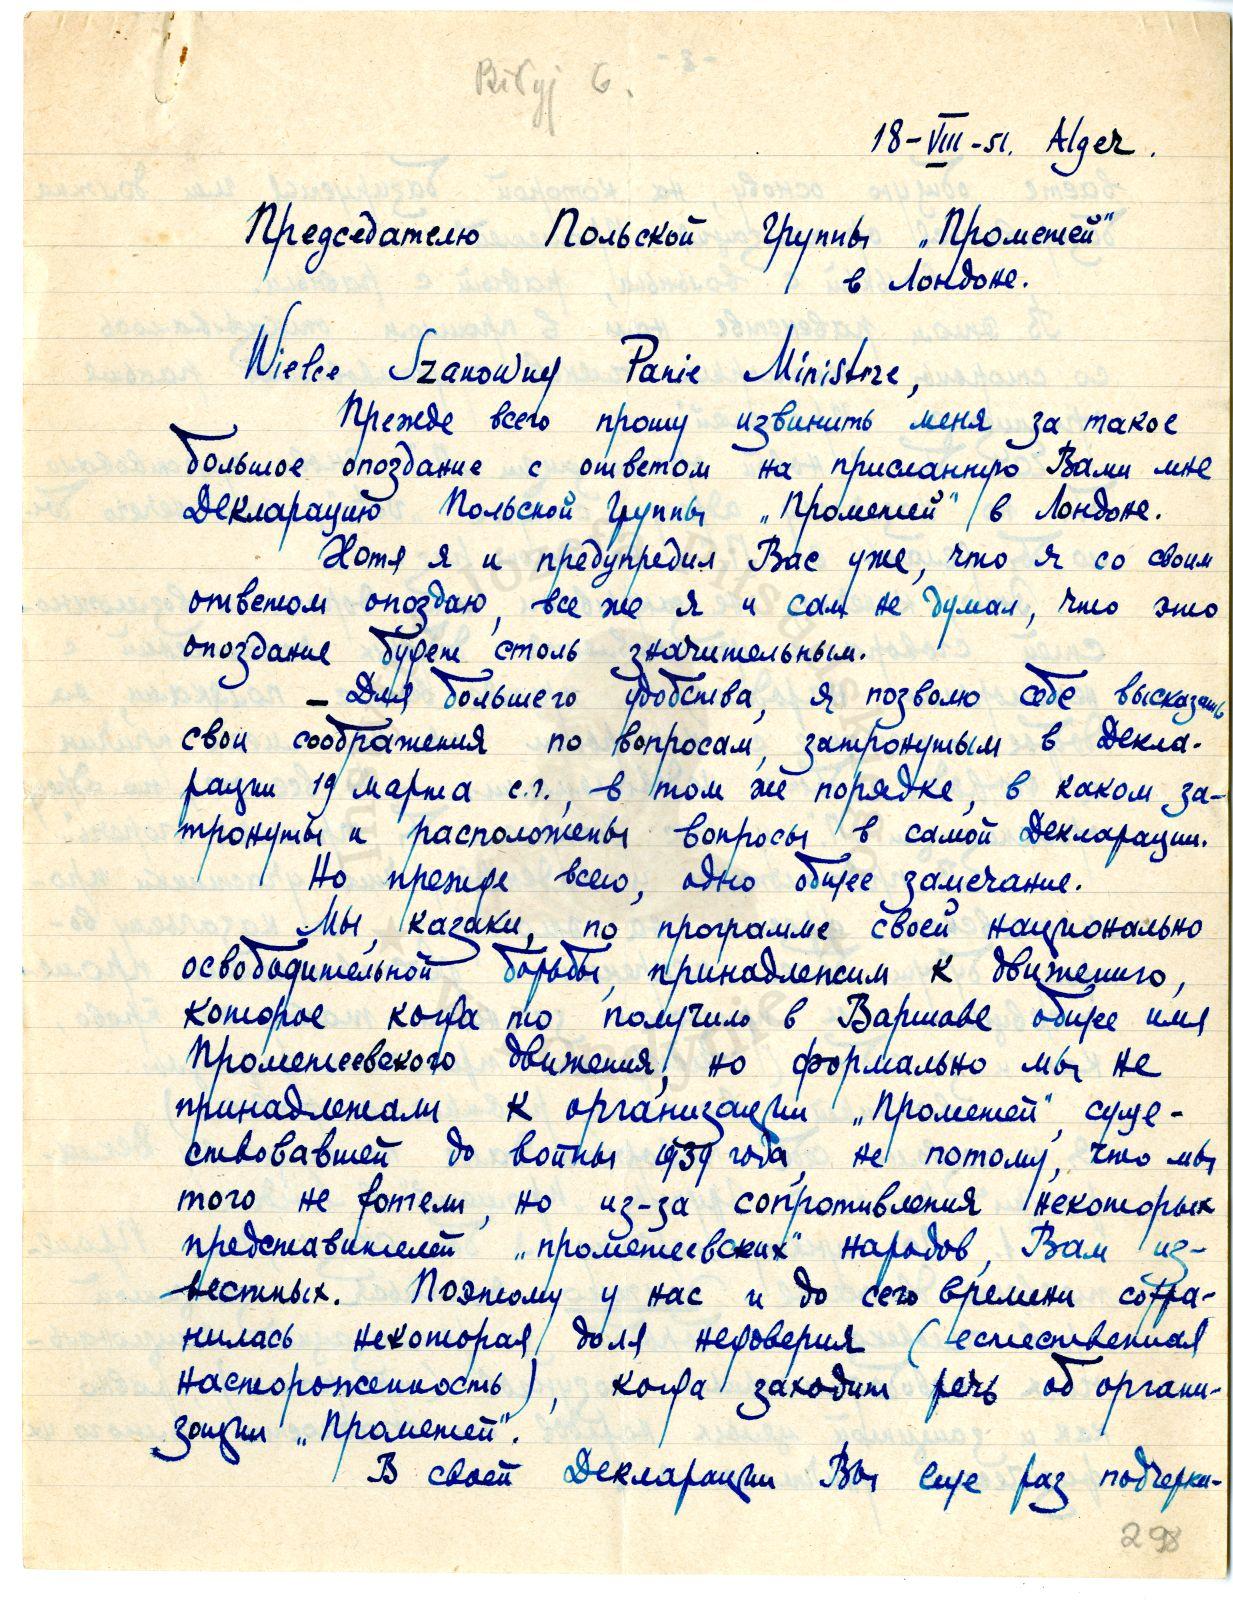 Biłyj G.
18-VIII-51. Alger.
Председателю Польской Группы „Прометей"
в Лондоне.
Wielce Szanowny Panie Ministrze,
Прежде всего прошу извинить меня за такое
большое опоздание с ответом на присланную Вами мне
Декларацию Польской Группы „Прометей" в Лондоне.
Хотя я и предупредил Вас уже, что я со своим
ответом опоздаю, все же я и сам не думал, что это
опоздание будет столь значительным.
– Для большего удобства, я позволю себе высказать
свои соображения по вопросам, затронутым в Декла-
рации 19 марта с.г., в том же порядке, в каком за-
тронуты и расположены вопросы в самой Декларации.
Но прежде всего, одно общее замечание.
Мы, казаки, по программе своей национально
освободительной борьбы, принадлежим к движению,
которое когда то получило в Варшаве общее имя
Прометеевского движения, но формально мы не
принадлежали к организации „Прометей", суще-
ствовавшей до войны 1939 года, не потому, что мы
того не хотели, но из-за сопротивления некоторых
представителей „прометеевских" народов, Вам из-
вестных. Поэтому у нас и до сего времени сохра-
нилась некоторая доля недоверия (естественная
настороженность), когда заходит речь об органи-
зации „Прометей".
В своей Декларации Вы еще раз подчерки-
298